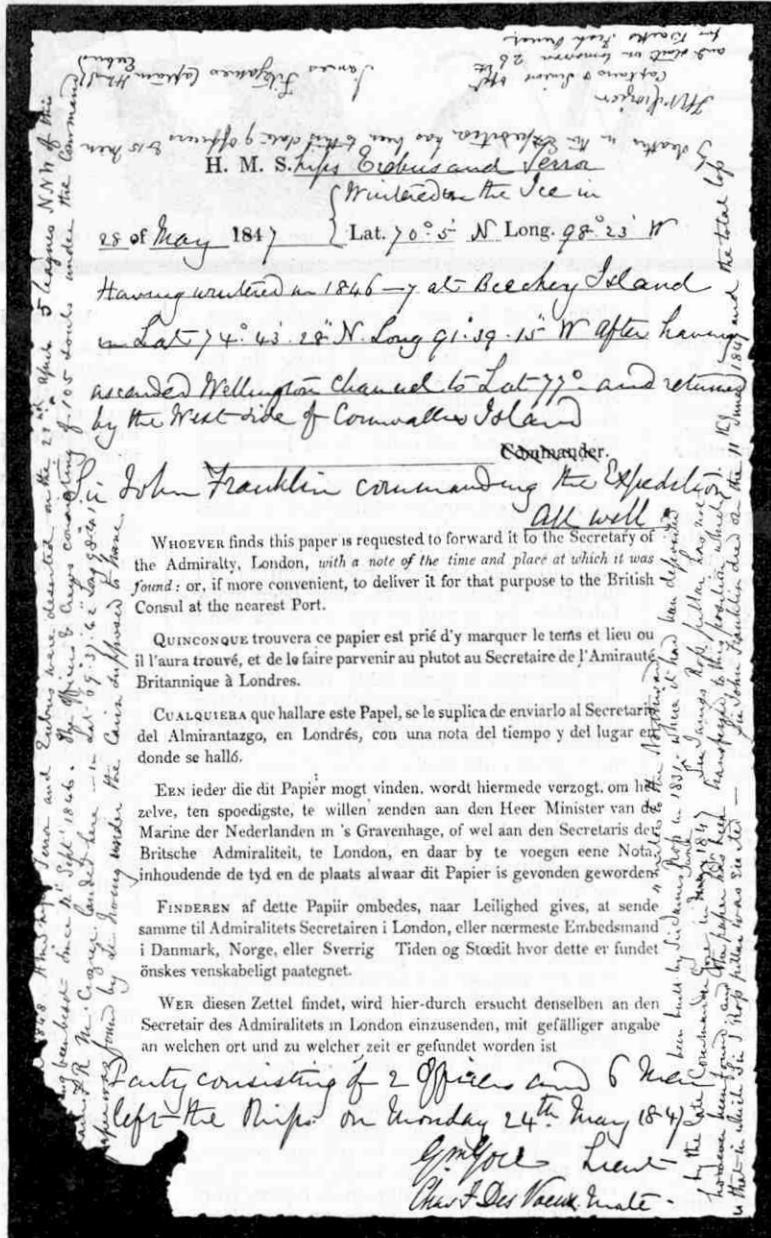 H. M. S.hips Erebus and Terror
Wintered in the Ice in
28 of May 1847 Lat. 70° 5' N Long. 98° 23' W
Having wintered in 1846—7 at Beechey Island
in Lat 74° 43' 28" N. Long 91° 39' 15" W After having
ascended Wellington Channel to Lat 77° and returned
by the West side of Cornwallis Island
Commander.
Sir John Franklin commanding the Expedition
All well
WHOEVER finds this paper is requested to forward it to the Secretary of
the Admiralty, London, with a note of the time and place at which it was
found: or, if more convenient, to deliver it for that purpose to the British
Consul at the nearest Port.
QUINCONQUE trouvera ce papier est prié d'y marquer le tems et lieu ou
il l'aura trouvé, et de le faire parvenir au plutot au Secretaire de l'Amirauté
Britannique à Londres.
CUALQUIERA que hallare este Papel, se le suplica de enviarlo al Secretario
del Almirantazgo, en Londrés, con una nota del tiempo y del lugar en
donde se halló.
EEN ieder die dit Papier mogt vinden, wordt hiermede verzogt, om het
zelve, ten spoedigste, te willen zenden aan den Heer Minister van de
Marine der Nederlanden in 's Gravenhage, of wel aan den Secretaris der
Britsche Admiraliteit, te London, en daar by te voegen eene Nota,
inhoudende de tyd en de plaats alwaar dit Papier is gevonden geworden.
FINDEREN af dette Papiir ombedes, naar Leilighed gives, at sende
samme til Admiralitets Secretairen i London, eller nœrmeste Embedsmand
i Danmark, Norge, eller Sverrig Tiden og Stœdit hvor dette er fundet
önskes venskabeligt paategnet.
WER diesen Zettel findet, wird hier-durch ersucht denselben an den
Secretair des Admiralitets in London einzusenden, mit gefälliger angabe
an welchen ort und zu welcher zeit er gefundet worden ist
Party consisting of 2 Officers and 6 Men
left the Ships on Monday 24th May 1847
Gm Gore Lieut
Chas F Des Voeux Mate
848 HM Ships Terror and Erebus were deserted on the 22nd April 5 leagues NNW of this
ing been beset since 12th Septr 1846. The officers & crews consisting of 105 souls under the command
ain F.R.M. Crozier landed here — in Lat. 69° 37' 42" Long 98° 41'
paper was found by Lt Irving under the Cairn supposed to have
been built by Sir James Ross in 1831 where it had been deposited
4 miles to the Northward
by the late Commander Gore in May June 1847 Sir James Ross' pillar has not
however been found and the paper has been transferred to this position which
is that in which Sir J Ross' pillar was erected — Sir John Franklin died on the 11th June 1847 and the total loss
by deaths in the Expedition has been to this date 9 officers & 15 men
James Fitzjames Captain HMS Erebus
F R M Crozier
Captain & Senior Offr
and start on tomorrow 26th
for Backs Fish River